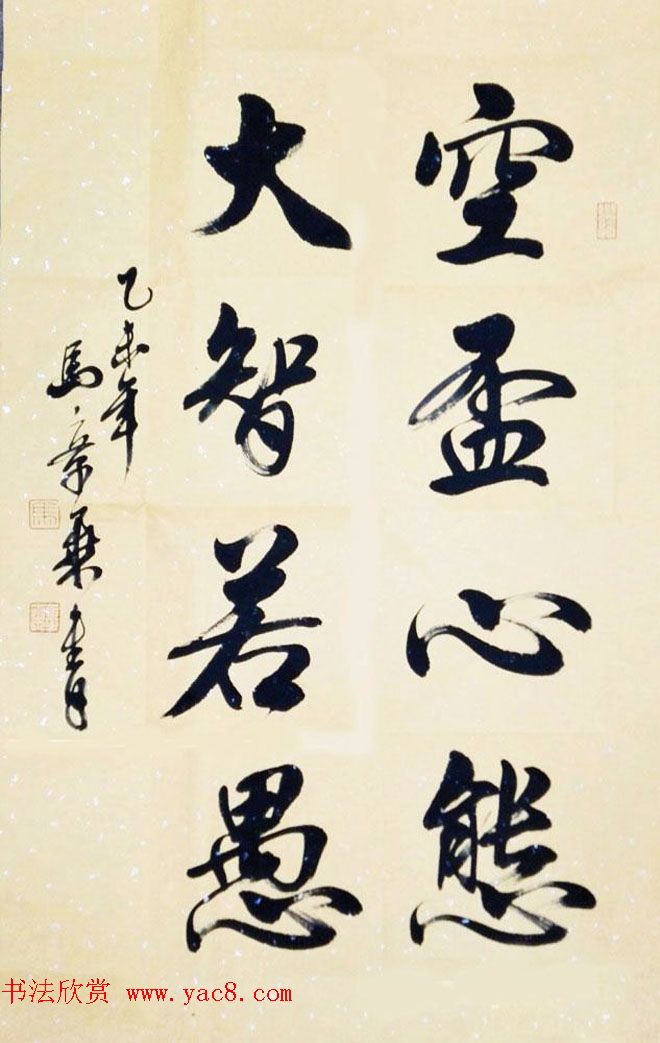 空盃心態
大智若愚
乙未年
馬章乘書
书法欣赏 www.yac8.com